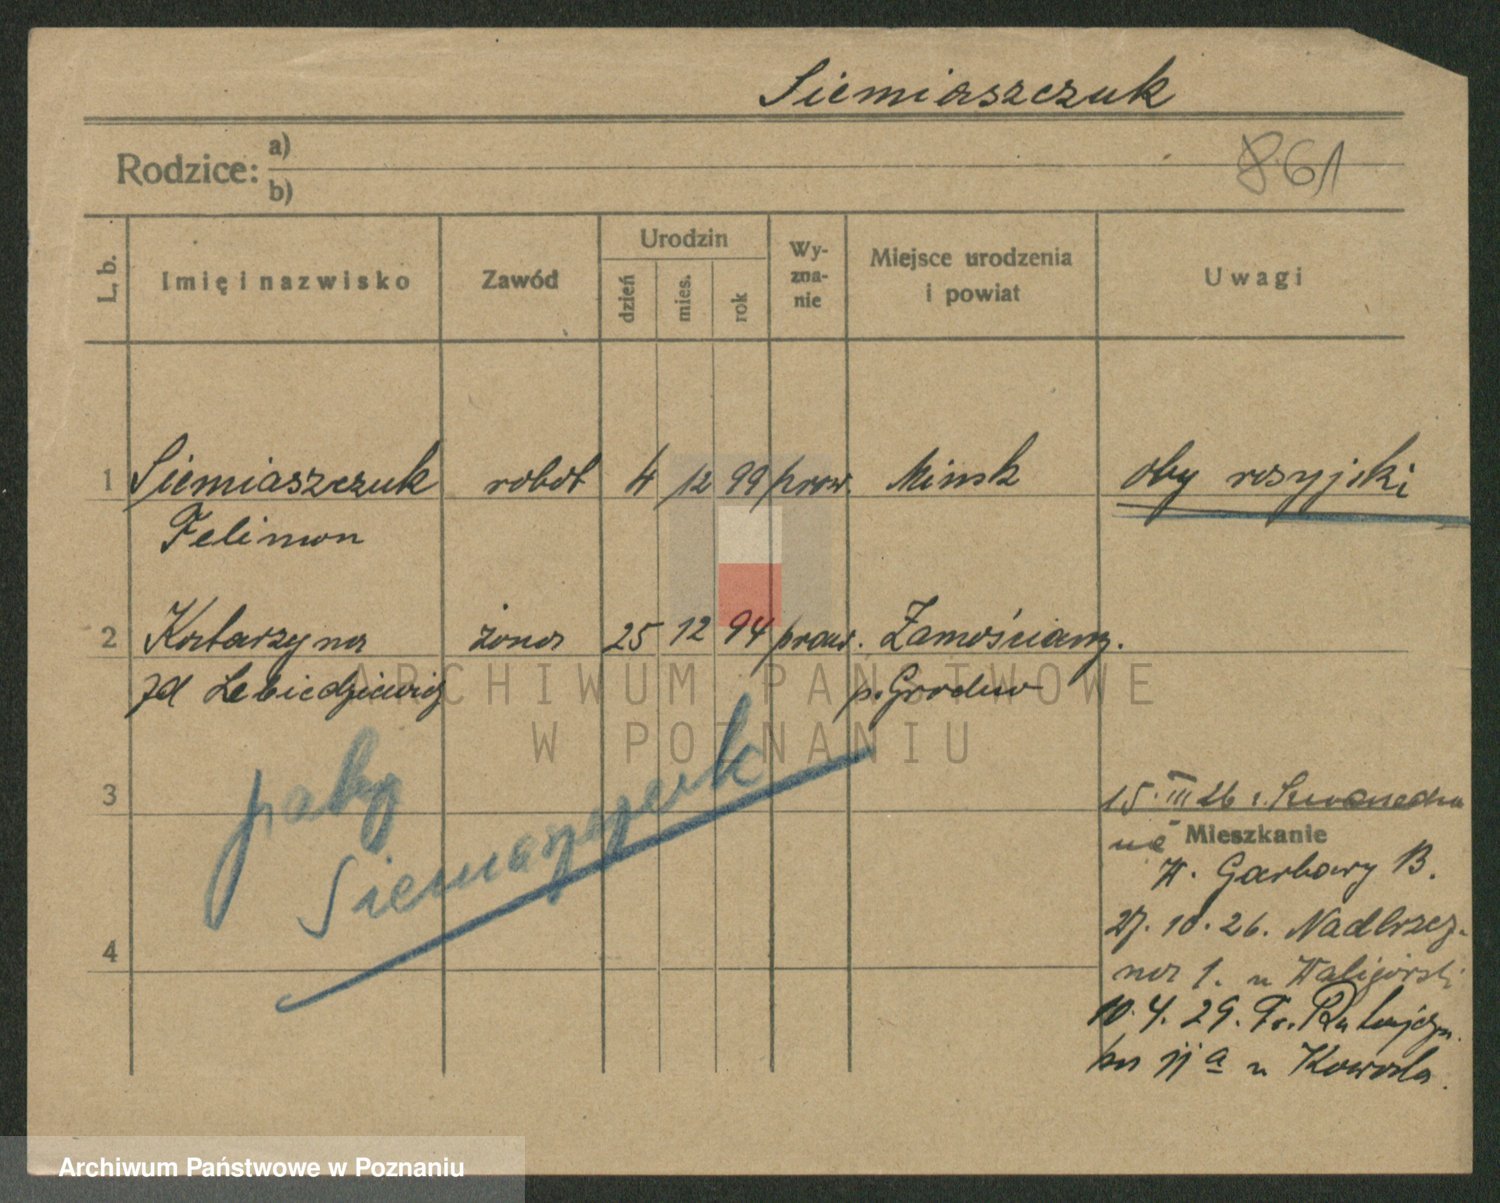 Siemiaszczuk
861
Rodzice: a)
b)
L. b. Imię i nazwisko Zawód Urodzin dzień mies. rok Wy-zna-nie Miejsce urodzenia i powiat Uwagi
1 Siemiaszczuk robot 4 12 99 praw. Minsk oby rosyjski
Felimon
2 Katarzyna żona 25 12 94 praw. Zamościany.
zd Lebiedziewicz p. Grodno
ARCHIWUM PAŃSTWOWE
W POZNANIU
Siemaszczuk
3
15. III 26
Mieszkanie
W. Garbary B.
27. 10. 26. Nadbrzeż-
na 1. u Waligórski
4
10. 4. 29. Fr. Ratajcza
ka 11 a u Kowala.
Archiwum Państwowe w Poznaniu